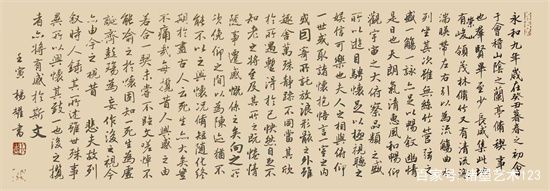 永和九年歲在癸丑暮春之初會
于會稽山陰之蘭亭脩稧事
也羣賢畢至少長咸集此地
有崇山峻領茂林脩竹又有清流激
湍暎帶左右引以為流觴曲水
列坐其次雖無絲竹管弦之
盛一觴一詠亦足以暢敘幽情
是日也天朗氣清惠風和暢仰
觀宇宙之大俯察品類之盛
所以遊目騁懷足以極視聽之
娛信可樂也夫人之相與俯仰
一世或取諸懷抱悟言一室之內
或因寄所託放浪形骸之外雖
趣舍萬殊靜躁不同當其欣
於所遇暫得於己怏然自足不
知老之將至及其所之既惓情
隨事遷感慨係之矣向之所
欣俛仰之間以為陳迹猶不
能不以之興懷況脩短隨化終
期於盡古人云死生亦大矣豈
不痛哉每攬昔人興感之由
若合一契未嘗不臨文嗟悼不
能喻之於懷固知一死生為虛
誕齊彭殤為妄作後之視今
亦由今之視昔 悲夫故列
敘時人錄其所述雖世殊事
異所以興懷其致一也後之攬
者亦將有感於斯文
壬寅 楊耀書
百家号